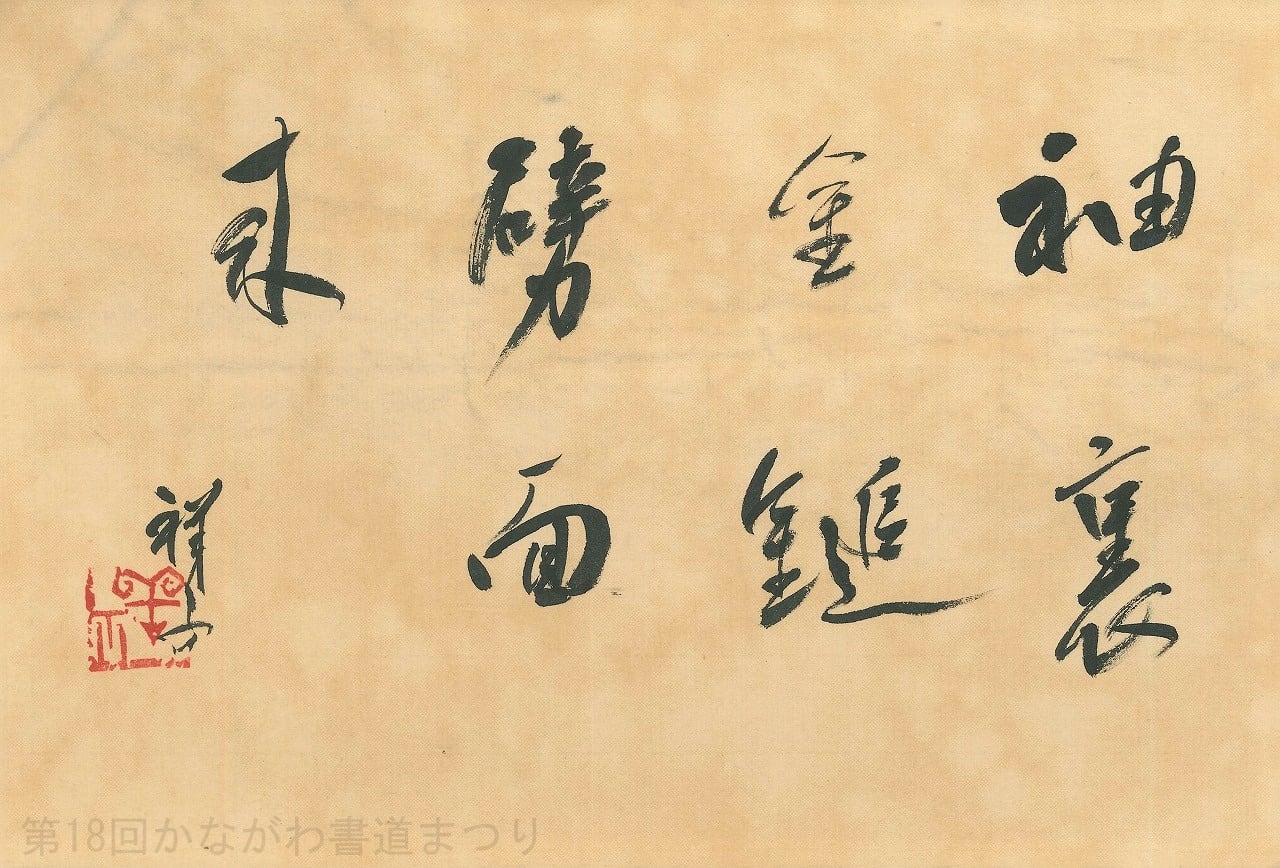 袖裏
金鎚
劈面
来
祥雲
第18回かながわ書道まつり